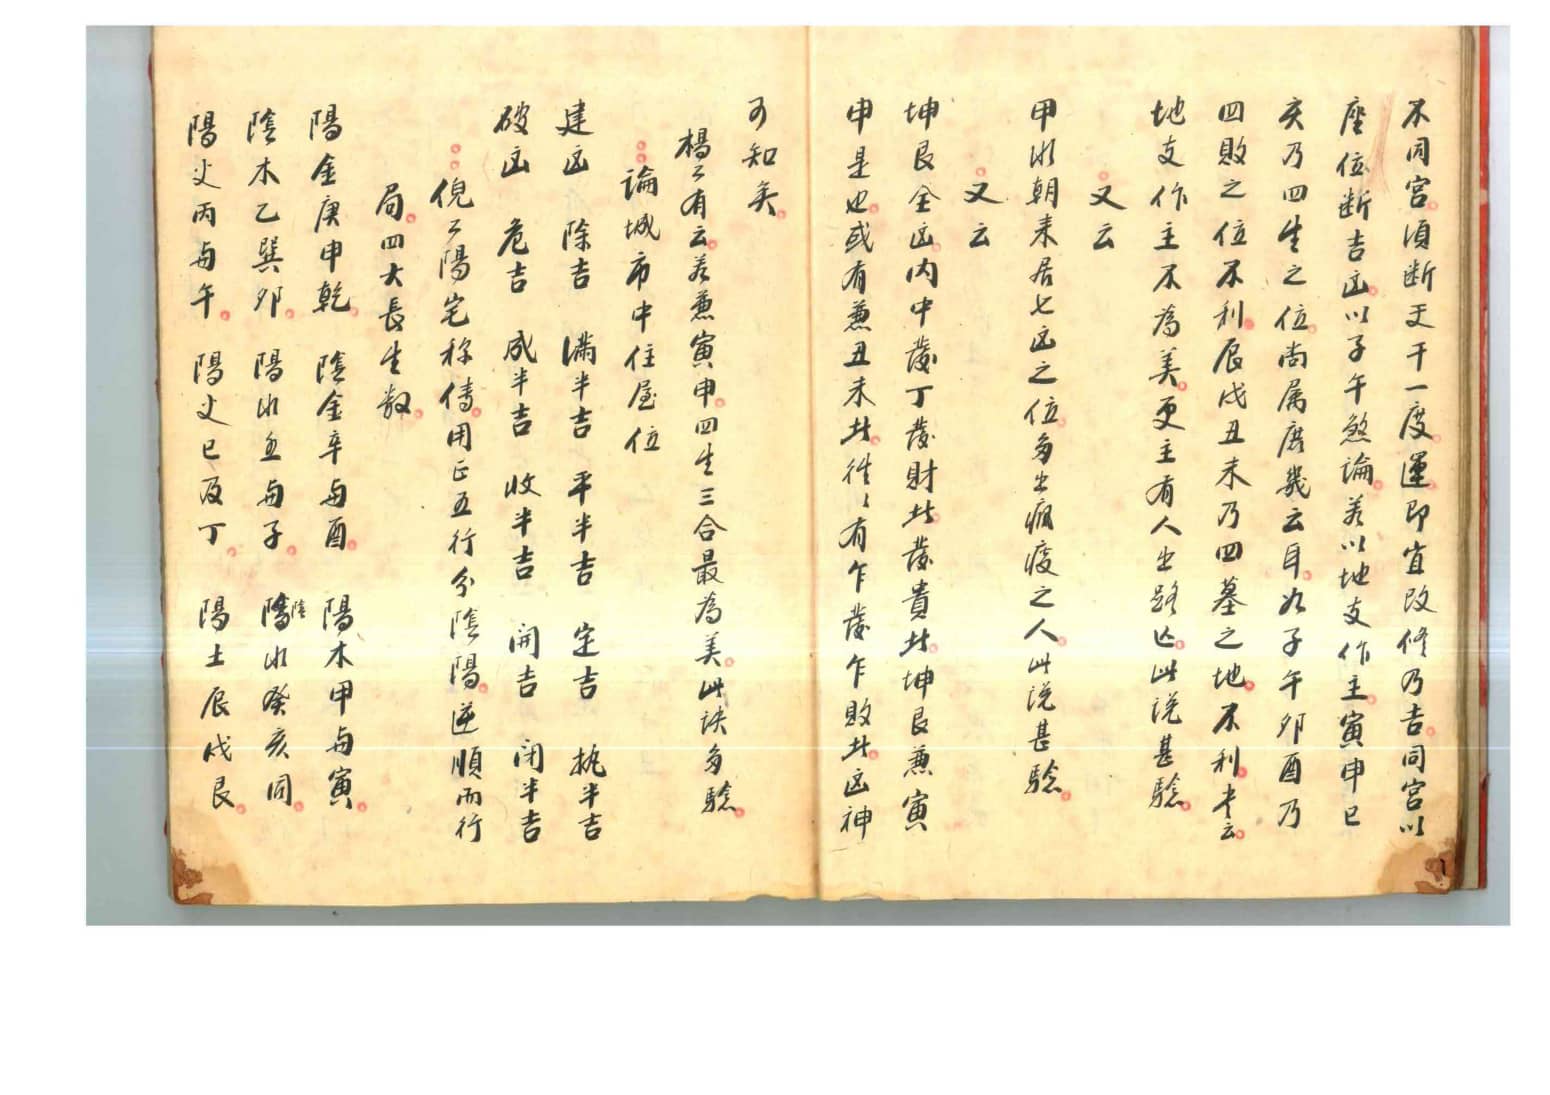 不同宮。須断天干一度。運。即宜改修乃吉。同宮以
座位断吉凶。以子午煞論。若以地支作主。寅申巳
亥乃四生之位。尚属庶幾云耳。如子午卯酉乃
四敗之位不利。辰戌丑未乃四墓之地。不利。書云。
地支作主不為美。更主有人出路亡。此說甚驗。
又云
甲水朝来居七凶之位。多出瘋疲之人。此說甚驗。
又云
坤艮全凶。内中發丁發財此。發貴此。坤艮兼寅
申是也。或有兼丑未此。往〻有乍發乍敗此。凶神
可知矣。
楊公有云。若兼寅申。四生三合最為美。此訣多驗。
論城市中住屋位
建凶 除吉 滿半吉 平半吉 定吉 執半吉
破凶 危吉 成半吉 收半吉 開吉 閉半吉
倪公陽宅称傳。用正五行分陰陽。逆順而行
局。四大長生數。
陽金庚申乾。 陰金辛与酉。 陽木甲与寅。
陰木乙巽卯。 陽水壬与子。 陰水癸亥同。
陽火丙与午。 陽火巳及丁。 陽土辰戌艮。